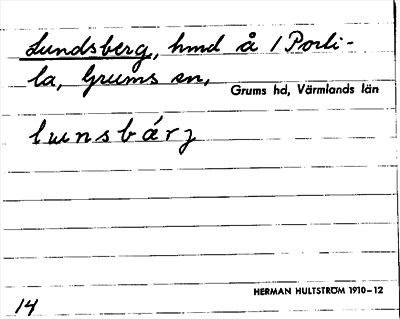 Lundsberg, hmd å 1 Porli-
la, Grums sn,
Grums hd, Värmlands län
lunsbárj
HERMAN HULTSTRÖM 1910-12
14